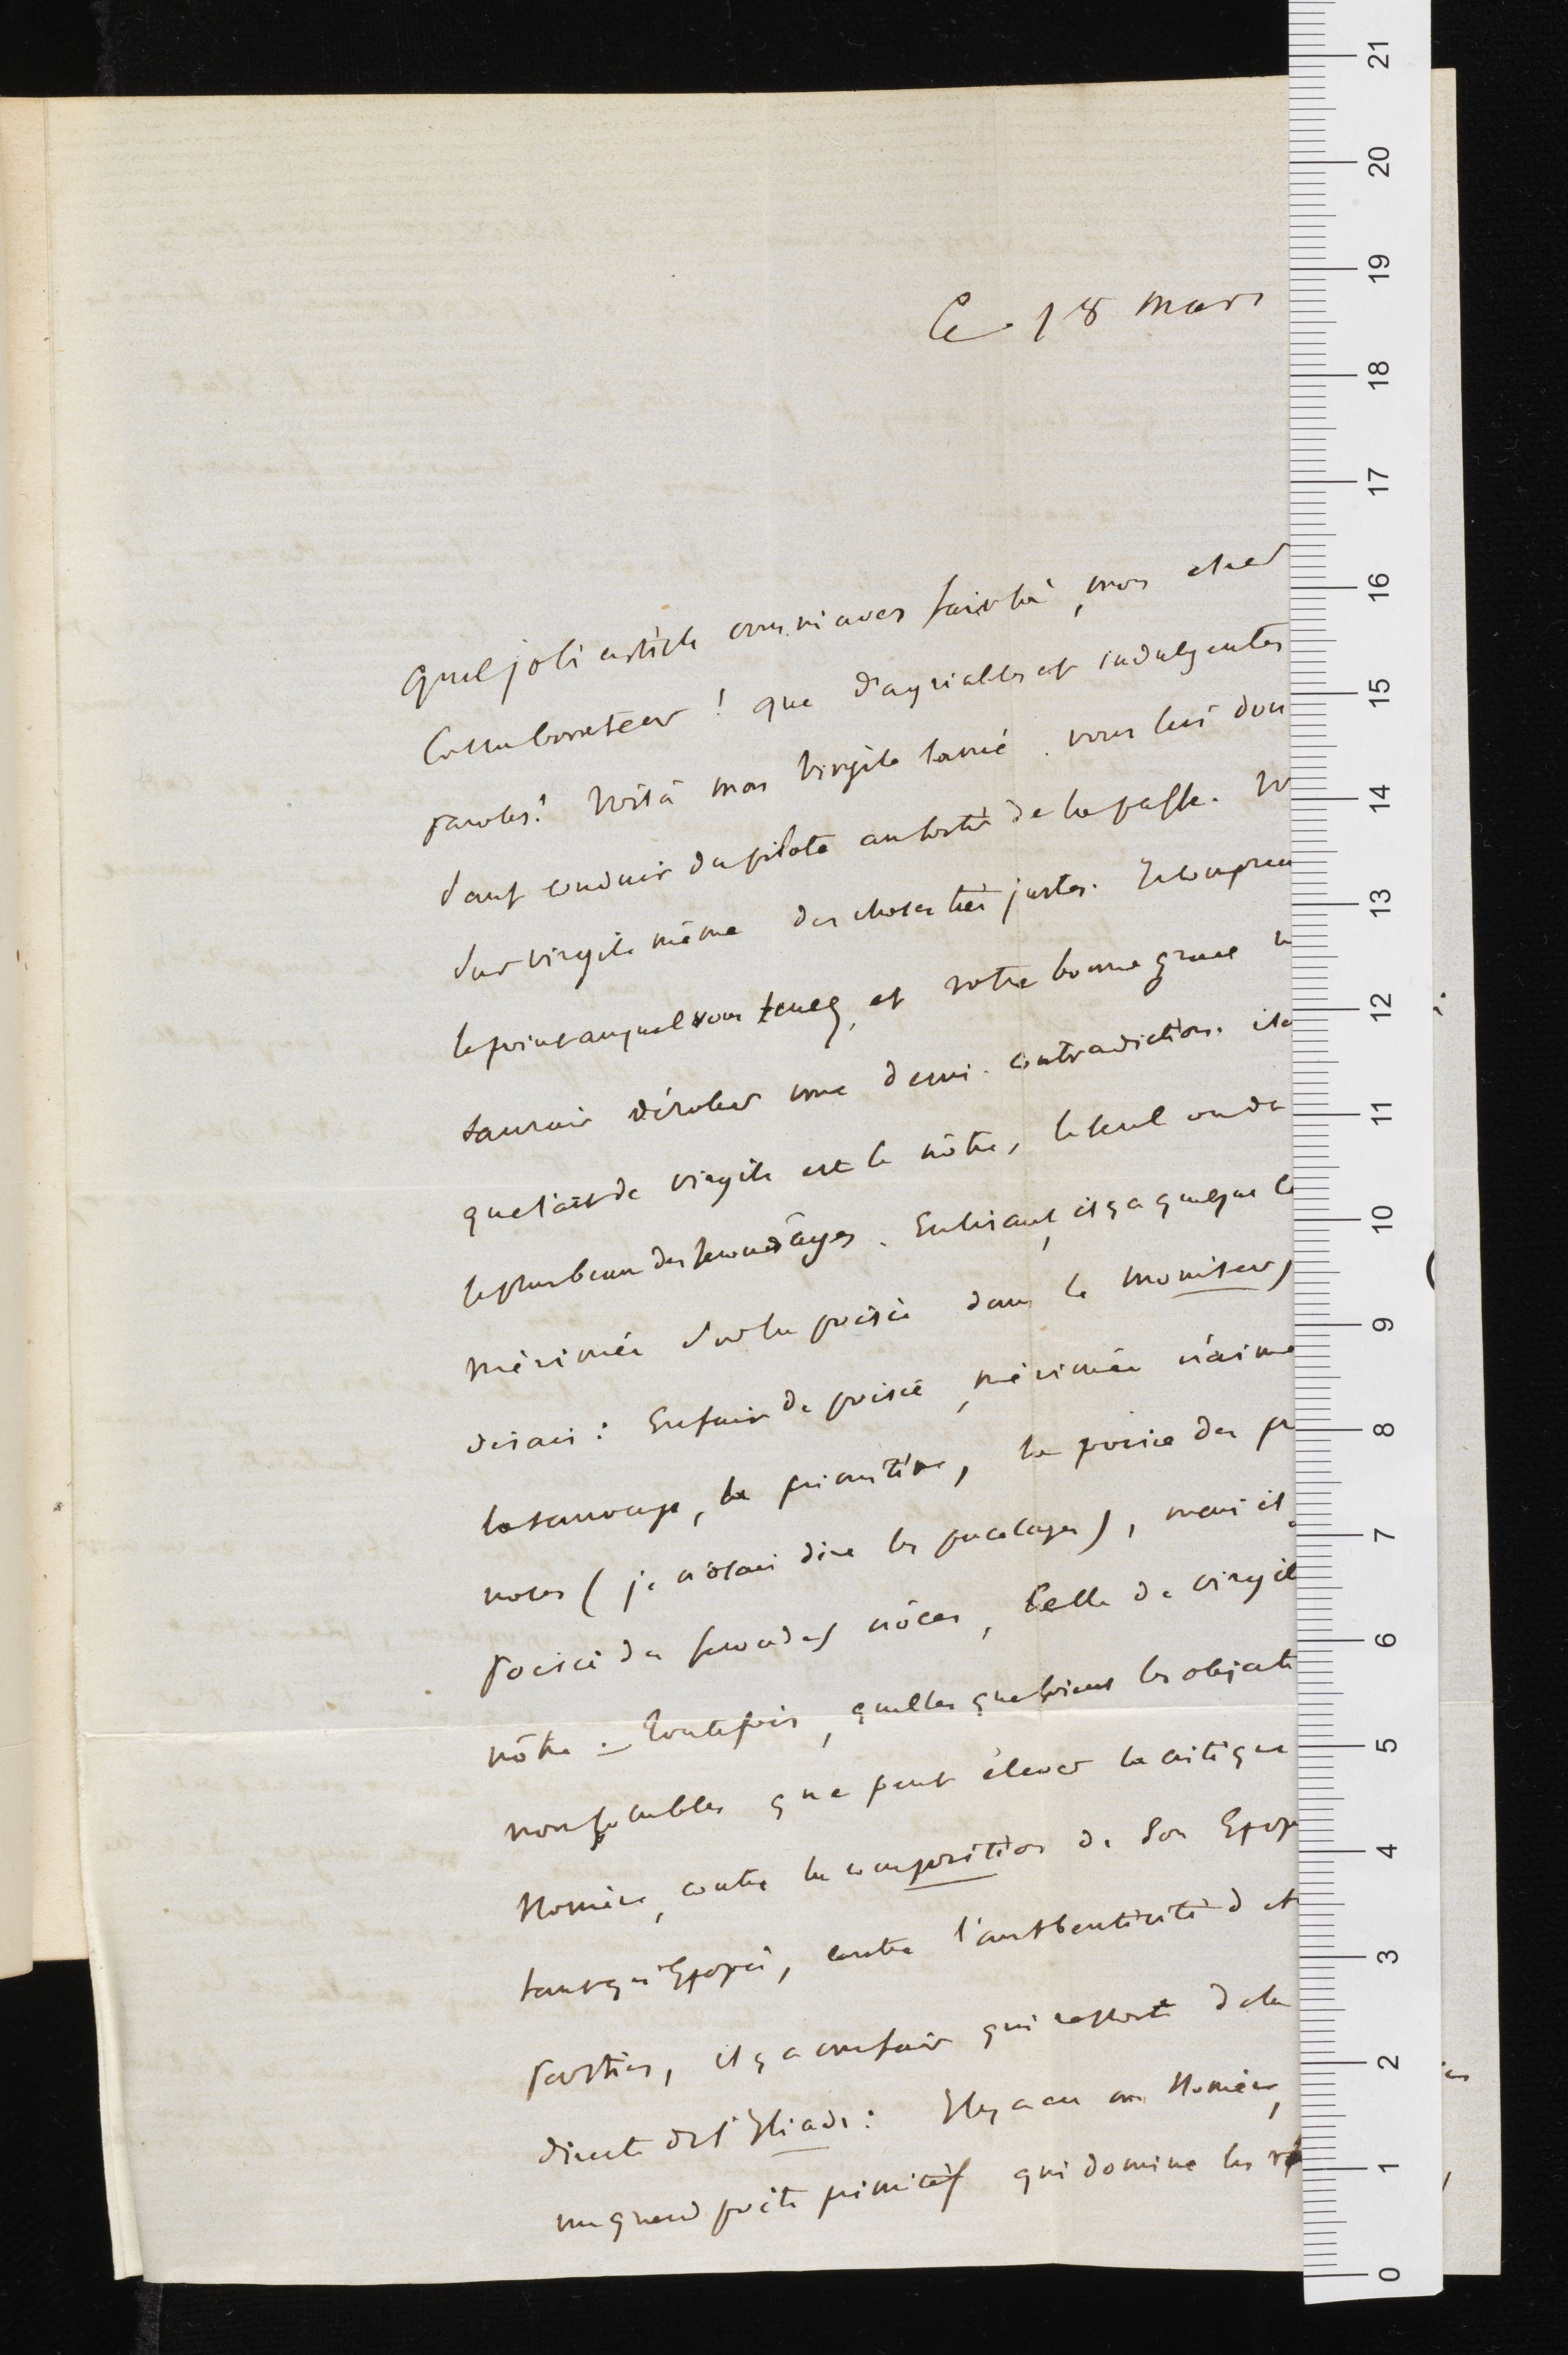 Ce 18 mars
Quel joli article vous m'avez fait là, mon cher
Collaborateur ! que d'agréables et indulgentes
paroles ! Voilà mon Virgile lancé. vous lui don
sauf conduit du pilote au sortir de la passe. Vo
sur Virgile même des choses très justes. Je compren
le point auquel vous tenez, et votre bonne grace n
saurait dérober une demi-contradiction. il
que l'art de Virgile est le nôtre, le seul ou du
le plus beau des seconds âges. En lisant, il y a quelque
Mérimée sur la poésie dans le Moniteur,
disais : En fait de poésie, Mérimée n'aime
la sauvage, la primitive, la poésie des pr
noces (je n'osais dire les pucelages), mais il
poésie de secondes nôces, Celle de Virgil
nôtre. — Toutefois, quelles que soient les objecti
nonsolubles que peut élever la critique
Homère, contre la composition de son Epop
tant qu'Epopée, contre l'authenticité d et
parties, il y a un fait qui ressort de la
directe de l'Iliade : Il y a eu un Homère,
un grand poëte primitif qui domine les
21
20
19
18
17
16
15
14
13
12
11
10
9
8
7
6
5
4
3
2
1
0